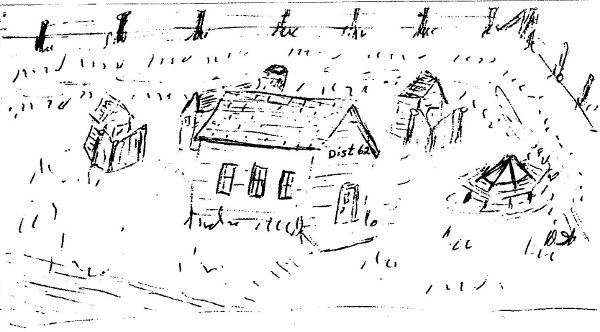 Dist 62